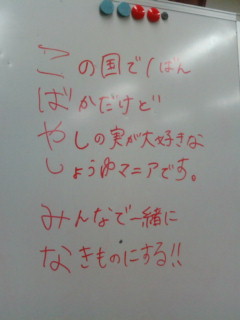 この国で1ばん
ばかだけど
やしの実が大好きな
しょうゆマニアです。
みんなで一緒に
なきものにする!!